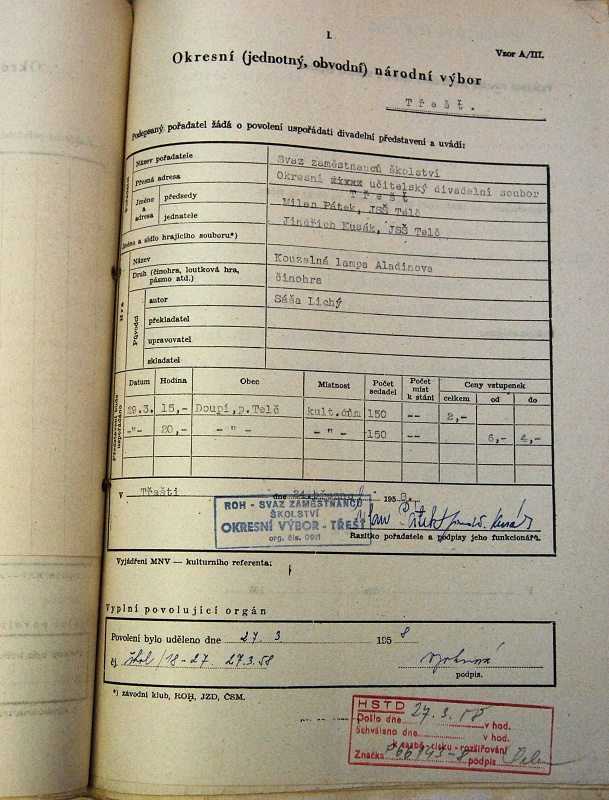 I.
Vzor A/III.
Okresní (jednotný, obvodní) národní výbor
Třešť.
Podepsaný pořadatel žádá o povolení uspořádati divadelní představení a uvádí:
Název pořadatele Svaz zaměstnanců školství
Přesná adresa Okresní učitelský divadelní soubor
Třešť
Jméno a adresa předsedy Milan Pátek, JSŠ Telč
jednatele Jindřich Kusák, JSŠ Telč
Jméno a sídlo hrajícího souboru*)
Hra
Název Kouzelná lampa Aladinova
Druh (činohra, loutková hra, pásmo atd.) činohra
Původci
autor Sáša Lichý
překladatel
upravovatel
skladatel
Představení bude uspořádáno
Datum Hodina Obec Místnost Počet sedadel Počet míst k stání Ceny vstupenek
celkem od do
29.3. 15,- Doupí,p.Telč kult.dům 150 -- 2,-
-"- 20,- - " - - " - 150 -- 6,- 4,-
V Třešti dne 24.března 1958.
ROH - SVAZ ZAMĚSTNANCŮ
ŠKOLSTVÍ
OKRESNÍ VÝBOR - TŘEŠŤ
org. čís. 0911
Razítko pořadatele a podpisy jeho funkcionářů.
Vyjádření MNV — kulturního referenta:
Vyplní povolující orgán
Povolení bylo uděleno dne 27. 3 1958
čj. škol/18-27. 27.3.58
podpis.
*) závodní klub, ROH, JZD, ČSM.
HSTD
Došlo dne 27.3.58 v hod.
Schváleno dne v hod.
k sazbě-tisku-rozšiřování
Značka podpis